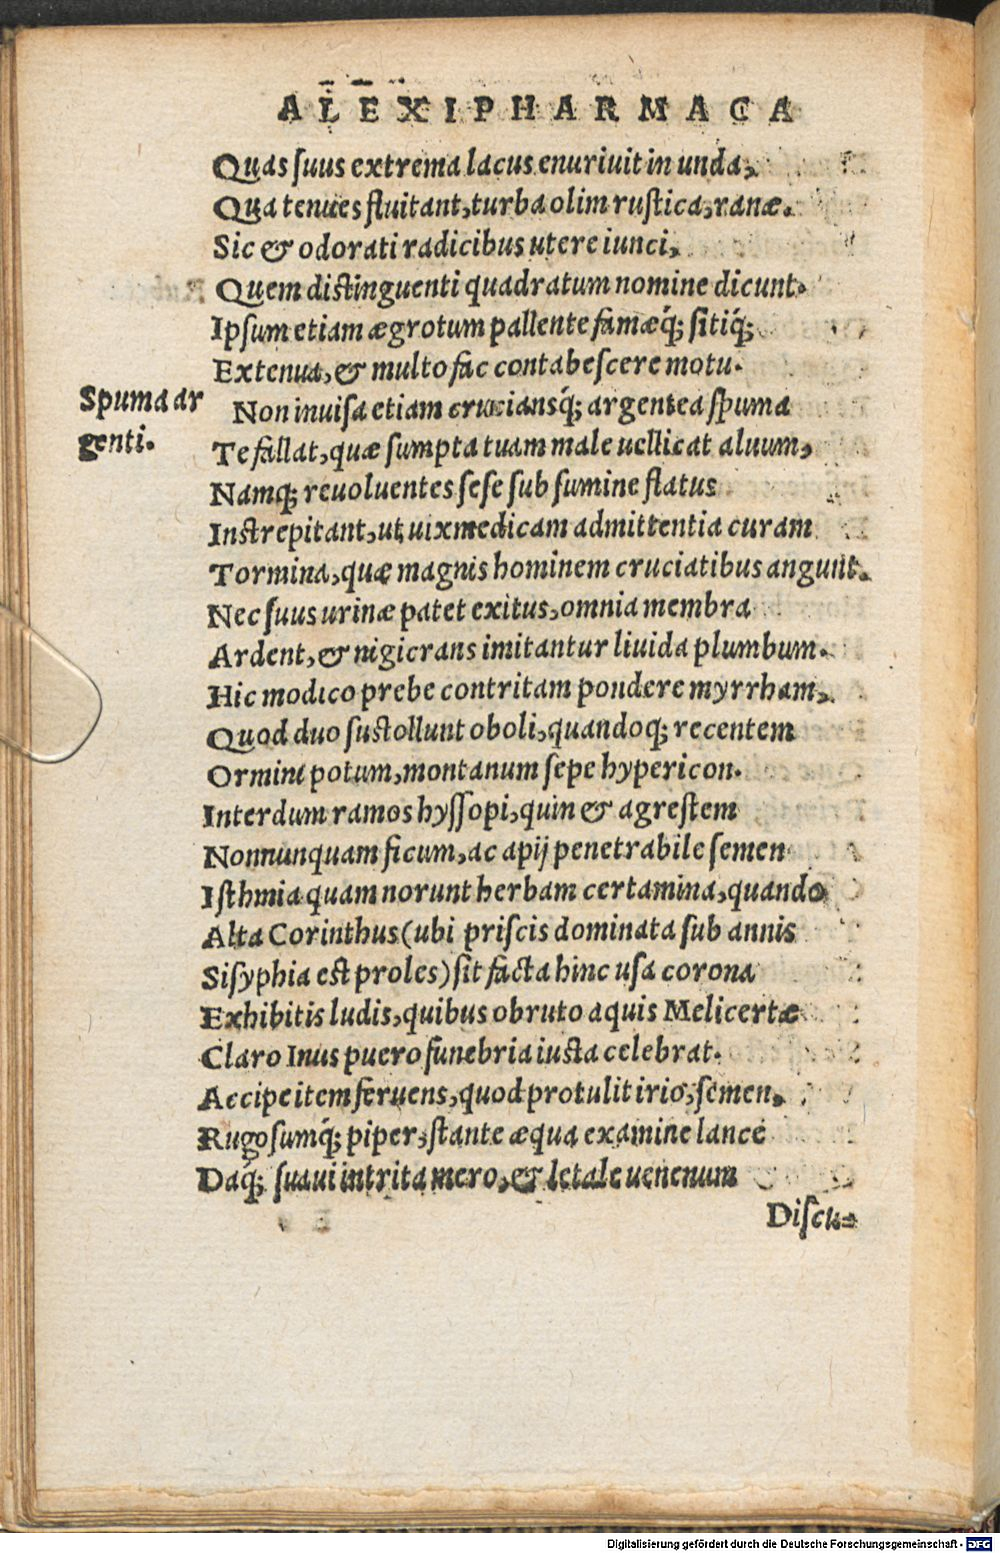 ALEXIPHARMACA
Quas ſuus extrema lacus enuriuit in unda,
Qua tenues fluitant, turba olim ruſtica, ranæ.
Sic & odorati radicibus utere iunci,
Quem diſtinguenti quadratum nomine dicunt.
Ipſum etiam ægrotum pallente famæq́; ſitiq́;
Extenua, & multo fac contabeſcere motu.
Spuma ar
genti.
Non inuiſa etiam cruciansq́; argentea ſpuma
Te fallat, quæ ſumpta tuam male uellicat aluum,
Namq; reuoluentes ſeſe ſub ſumine flatus
Inſtrepitant, ut uix medicam admittentia curam
Tormina, quæ magnis hominem cruciatibus angunt.
Nec ſuus urinæ patet exitus, omnia membra
Ardent, & nigicrans imitantur liuida plumbum.
Hic modico prebe contritam pondere myrrham,
Quod duo ſuſtollunt oboli, quandoq; recentem
Ormini potum, montanum ſepe hypericon.
Interdum ramos hyſſopi, quin & agreſtem
Nonnunquam ficum, ac apij penetrabile ſemen
Iſthmia quam norunt herbam certamina, quando
Alta Corinthus (ubi priſcis dominata ſub annis
Siſyphia eſt proles) ſit facta hinc uſa corona
Exhibitis ludis, quibus obruto aquis Melicertæ
Claro Inus puero funebria iuſta celebrat.
Accipe item feruens, quod protulit irio, ſemen,
Rugoſumq́; piper, ſtante æqua examine lance
Daq́; ſuaui intrita mero, & letale uenenum
Diſcu-
Digitalisierung gefördert durch die Deutsche Forschungsgemeinschaft - DFG